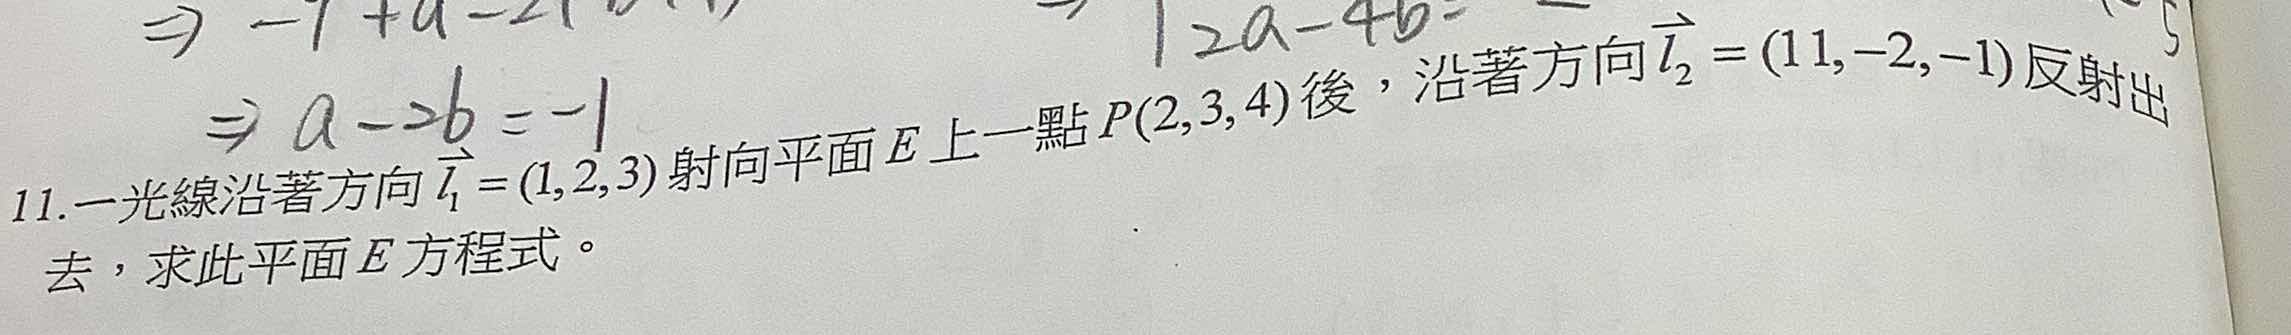 ⇒ -9 + a - 2
⇒ 2a - 4b =
⇒ a - 2b = -1
11.一光線沿著方向 $\vec{l_1}$ = (1, 2, 3) 射向平面 E 上一點 P(2, 3, 4) 後，沿著方向 $\vec{l_2}$ = (11, -2, -1) 反射出
去，求此平面 E 方程式。